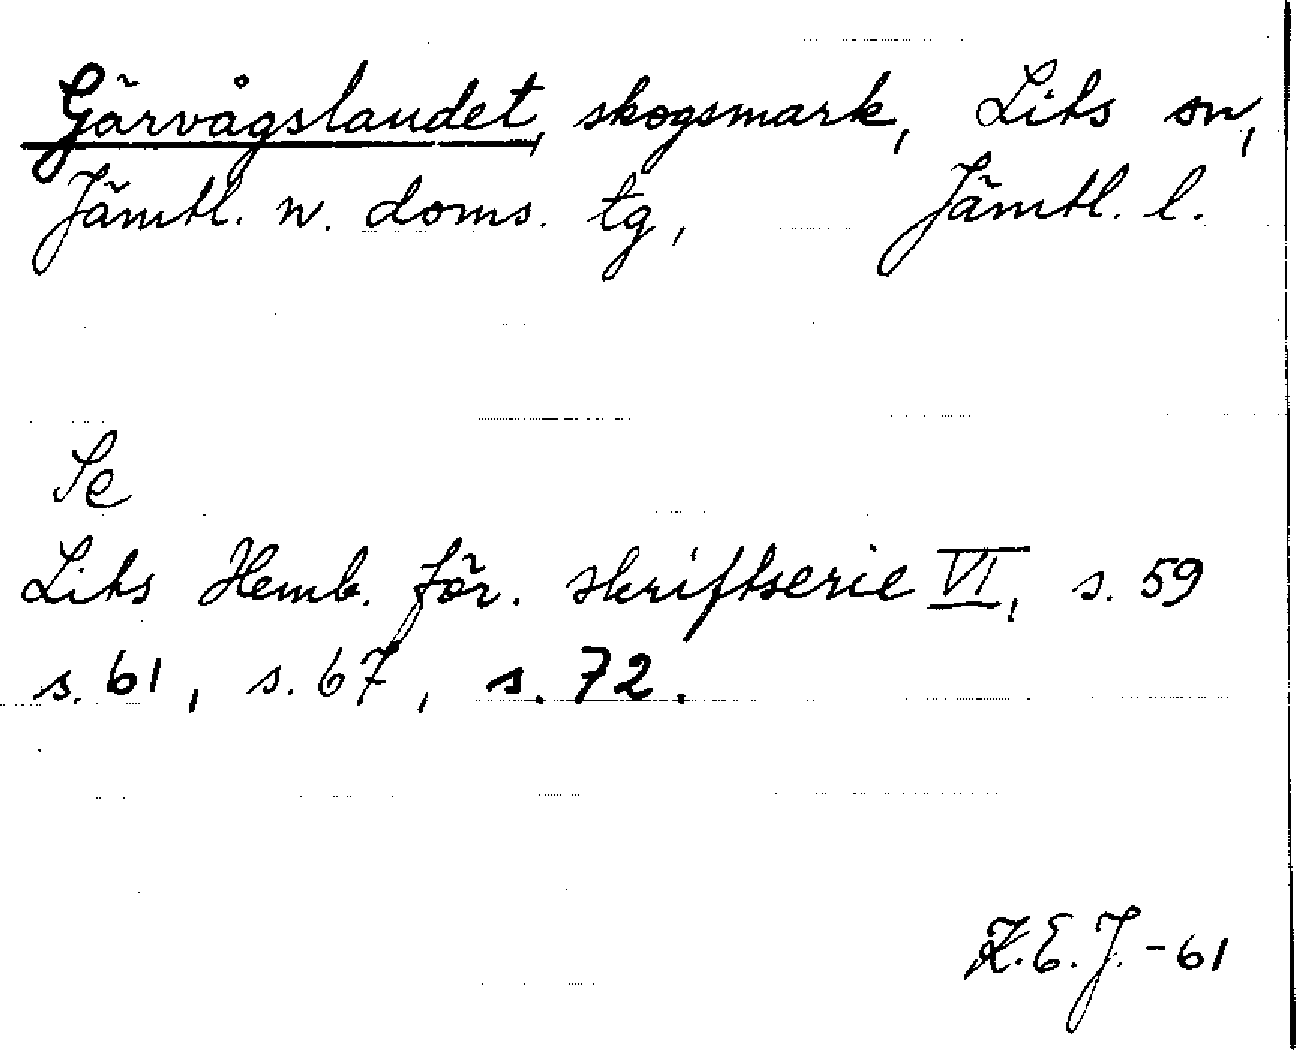 Gärvågslandet, skogsmark, Lits sn,
Jämtl. n. doms. tg, Jämtl. l.
Se
Lits Hemb. för. skriftserie VI, s. 59
s. 61, s. 67, s. 72.
K.E.J. -61